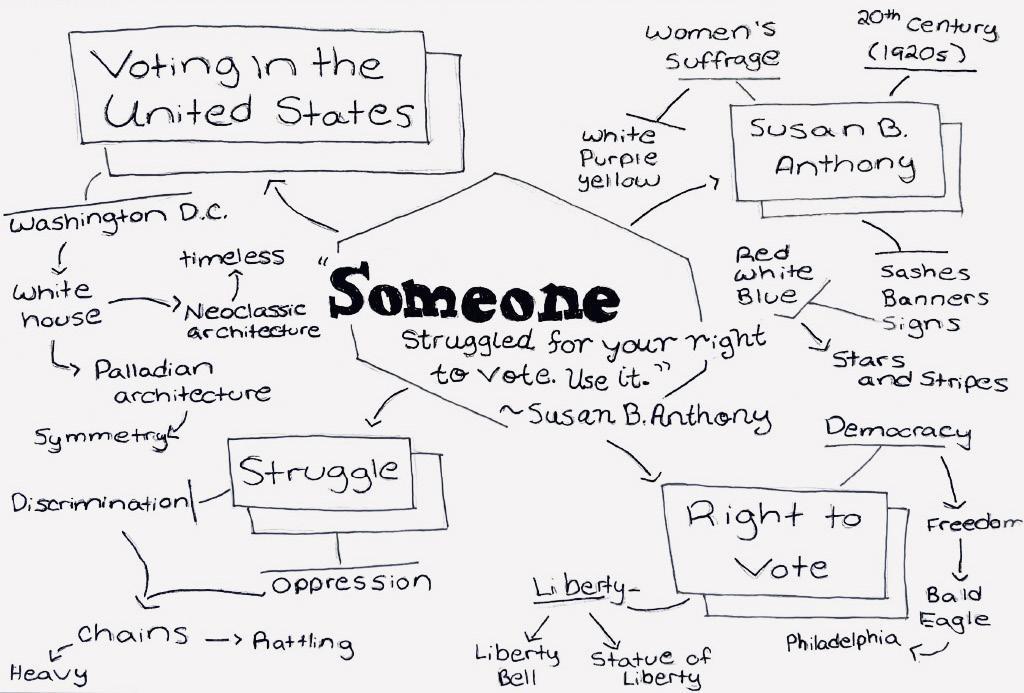 Voting in the
United States
Women's
Suffrage
20th Century
(1920s)
White
Purple
yellow
Susan B.
Anthony
Washington D.C.
White
house
timeless
Neoclassic
architecture
Palladian
architecture
Symmetry
"Someone
Struggled for your right
to vote. Use it."
~Susan B. Anthony
Red
White
Blue
Sashes
Banners
Signs
Stars
and Stripes
Struggle
Discrimination
Oppression
Chains
Rattling
Heavy
Right to
Vote
Democracy
Freedom
Bald
Eagle
Philadelphia
Liberty
Liberty
Bell
Statue of
Liberty